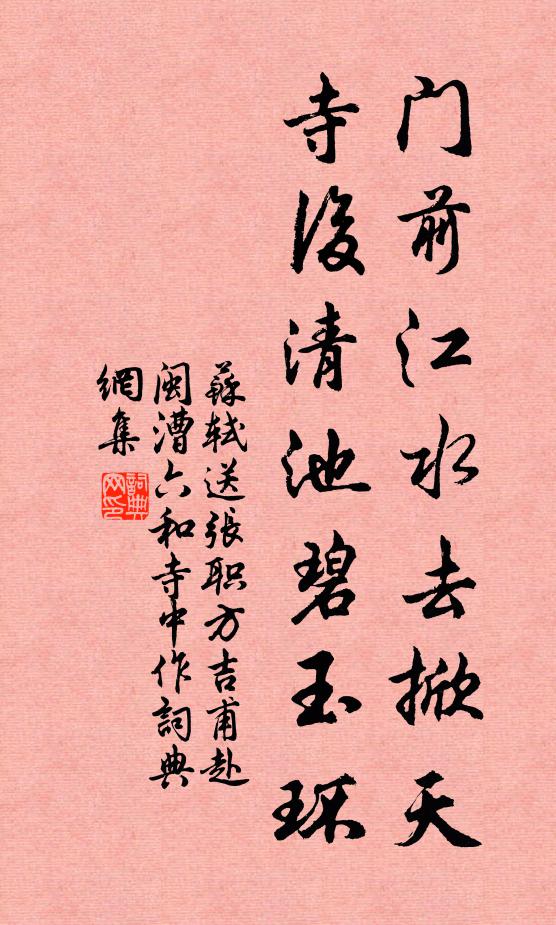 门前江水去掀天
寺後清池碧玉环
蘇轼送張职方吉甫赴
闽漕六和寺中作詞典
網集
詞典网印